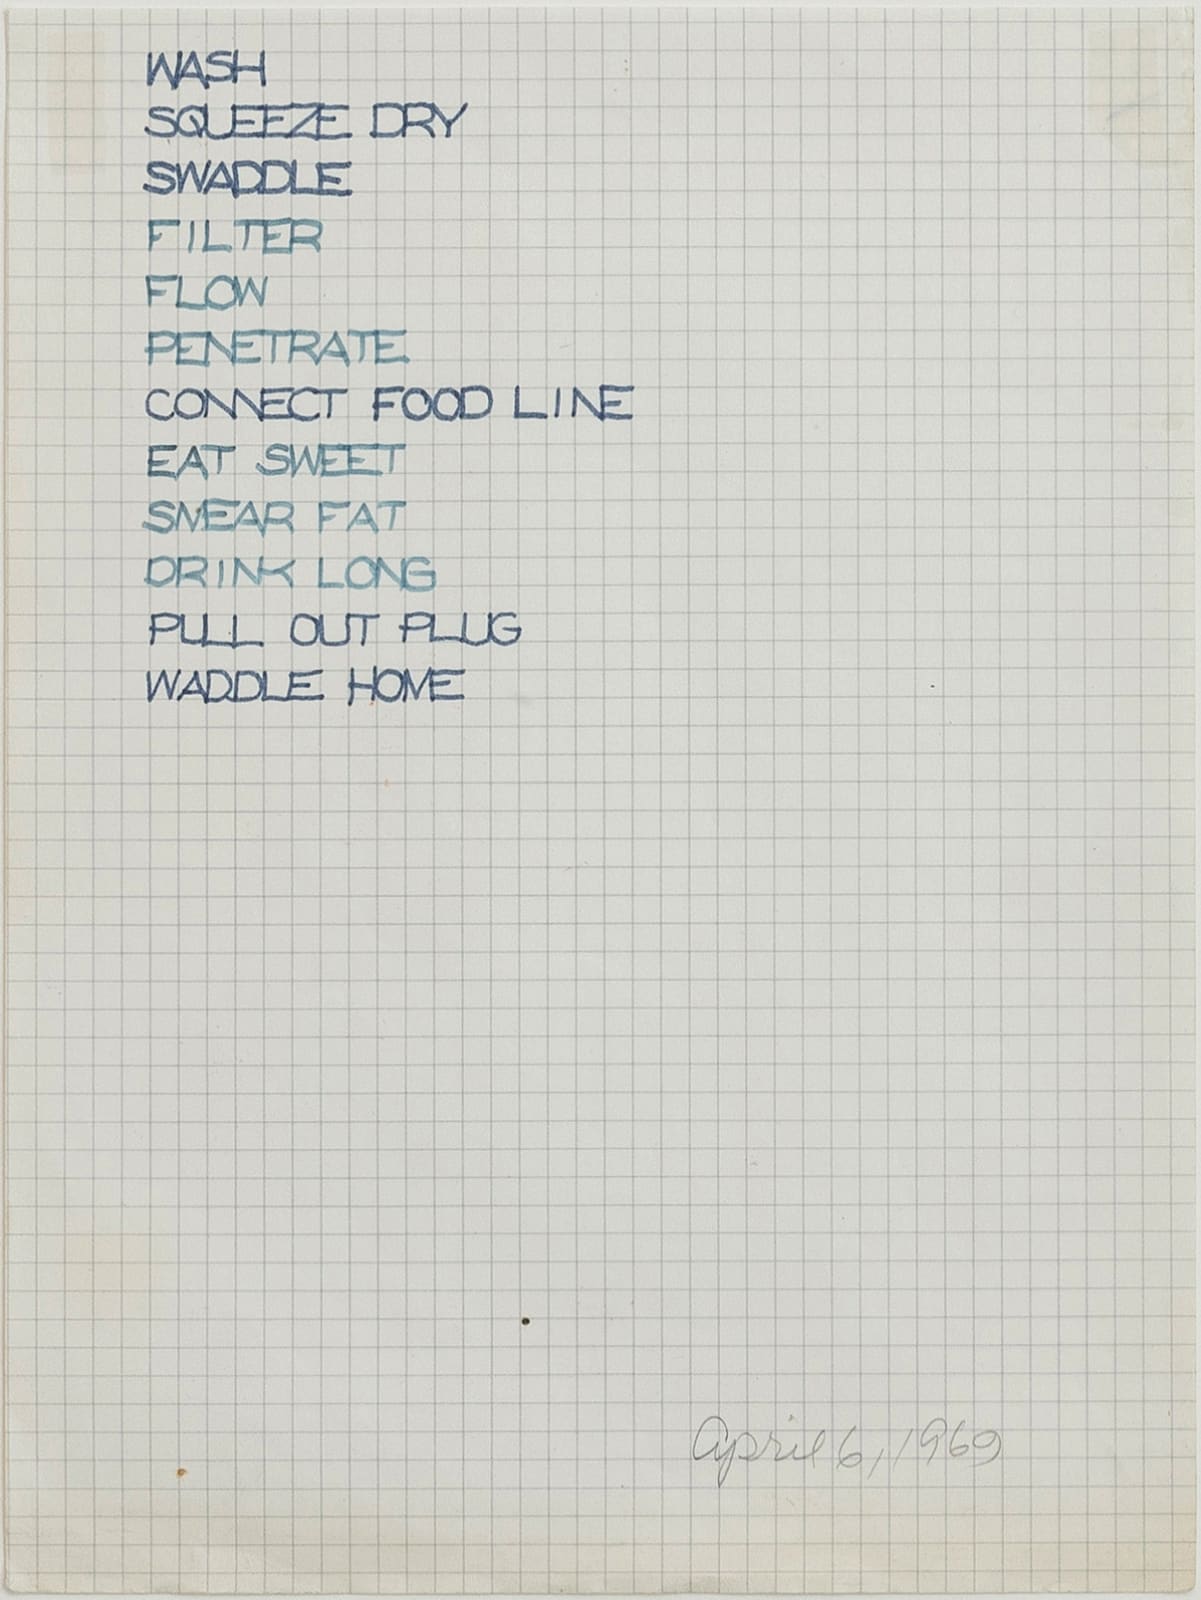 WASH
SQUEEZE DRY
SWADDLE
FILTER
FLOW
PENETRATE
CONNECT FOOD LINE
EAT SWEET
SMEAR FAT
DRINK LONG
PULL OUT PLUG
WADDLE HOME
April 6, 1969